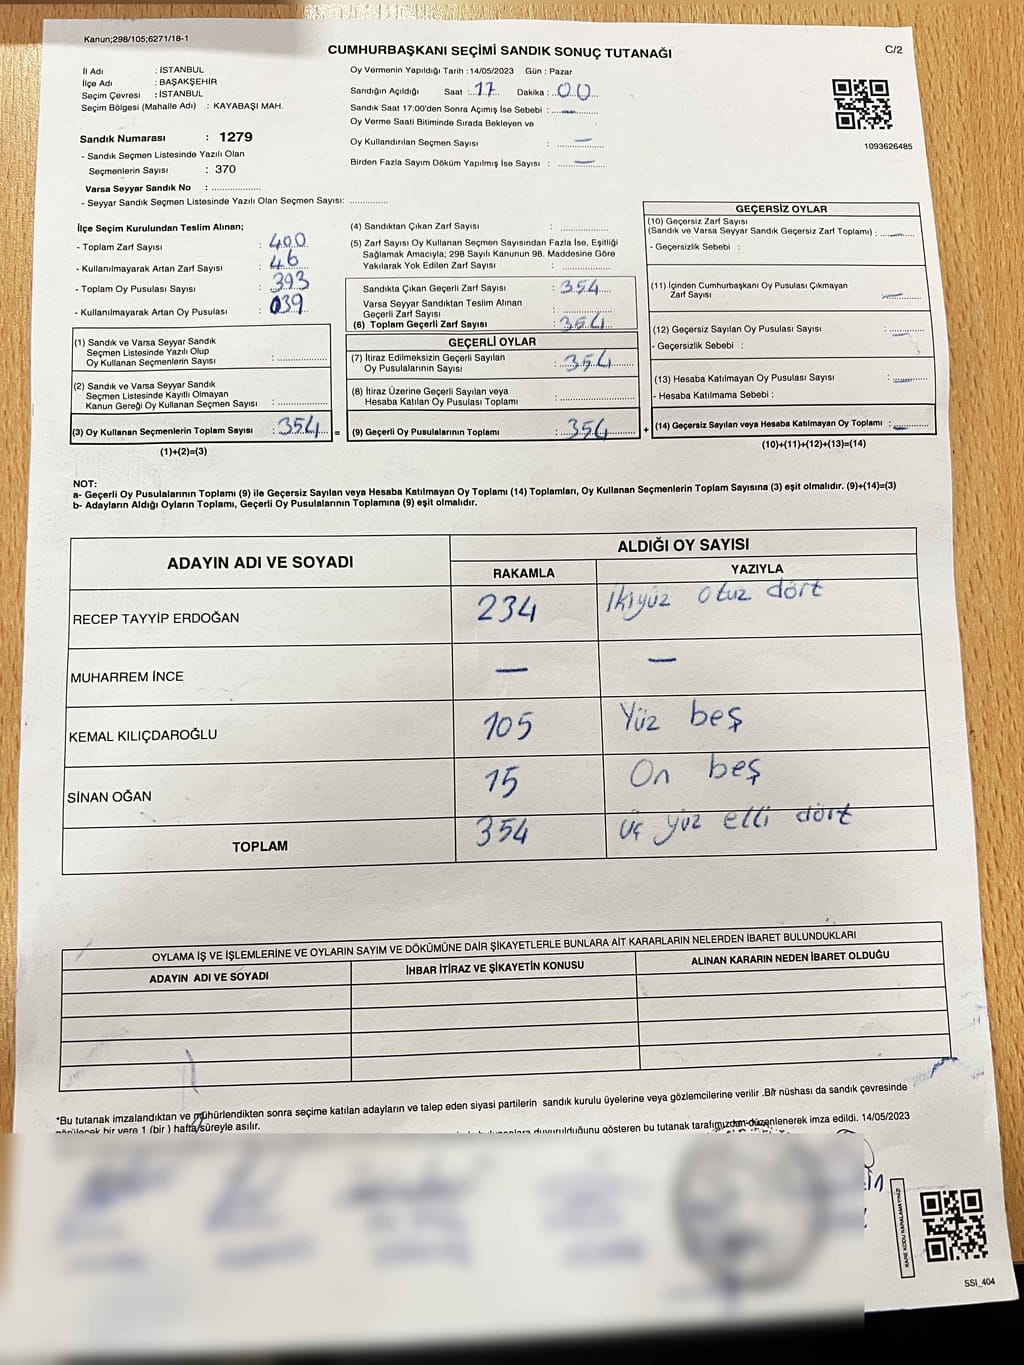 Kanun;298/105;6271/18-1
CUMHURBAŞKANI SEÇİMİ SANDIK SONUÇ TUTANAĞI
C/2
İl Adı : İSTANBUL
İlçe Adı : BAŞAKŞEHİR
Seçim Çevresi : İSTANBUL
Seçim Bölgesi (Mahalle Adı) : KAYABAŞI MAH.
Sandık Numarası : 1279
- Sandık Seçmen Listesinde Yazılı Olan
Seçmenlerin Sayısı : 370
Varsa Seyyar Sandık No : ..................
- Seyyar Sandık Seçmen Listesinde Yazılı Olan Seçmen Sayısı: ..............
Oy Vermenin Yapıldığı Tarih : 14/05/2023 Gün : Pazar
Sandığın Açıldığı Saat : 17 Dakika : 00
Sandık Saat 17:00'den Sonra Açımış İse Sebebi : —
Oy Verme Saati Bitiminde Sırada Bekleyen ve
Oy Kullandırılan Seçmen Sayısı : —
Birden Fazla Sayım Döküm Yapılmış İse Sayısı : —
1093626485
İlçe Seçim Kurulundan Teslim Alınan;
- Toplam Zarf Sayısı : 400
- Kullanılmayarak Artan Zarf Sayısı : 46
- Toplam Oy Pusulası Sayısı : 393
- Kullanılmayarak Artan Oy Pusulası : 039
(1) Sandık ve Varsa Seyyar Sandık
Seçmen Listesinde Yazılı Olup
Oy Kullanan Seçmenlerin Sayısı : ..............
(2) Sandık ve Varsa Seyyar Sandık
Seçmen Listesinde Kayıtlı Olmayan
Kanun Gereği Oy Kullanan Seçmen Sayısı : ..............
(3) Oy Kullanan Seçmenlerin Toplam Sayısı : 354 =
(1)+(2)=(3)
(4) Sandıktan Çıkan Zarf Sayısı : ..............
(5) Zarf Sayısı Oy Kullanan Seçmen Sayısından Fazla İse, Eşitliği
Sağlamak Amacıyla; 298 Sayılı Kanunun 98. Maddesine Göre
Yakılarak Yok Edilen Zarf Sayısı : ..............
Sandıkta Çıkan Geçerli Zarf Sayısı : 354
Varsa Seyyar Sandıktan Teslim Alınan
Geçerli Zarf Sayısı : ..............
(6) Toplam Geçerli Zarf Sayısı : 354
GEÇERLİ OYLAR
(7) İtiraz Edilmeksizin Geçerli Sayılan
Oy Pusulalarının Sayısı : 354
(8) İtiraz Üzerine Geçerli Sayılan veya
Hesaba Katılan Oy Pusulası Toplamı : ..............
(9) Geçerli Oy Pusulalarının Toplamı : 354 +
GEÇERSİZ OYLAR
(10) Geçersiz Zarf Sayısı
(Sandık ve Varsa Seyyar Sandık Geçersiz Zarf Toplamı) : —
- Geçersizlik Sebebi :
(11) İçinden Cumhurbaşkanı Oy Pusulası Çıkmayan
Zarf Sayısı : —
(12) Geçersiz Sayılan Oy Pusulası Sayısı : —
- Geçersizlik Sebebi :
(13) Hesaba Katılmayan Oy Pusulası Sayısı : —
- Hesaba Katılmama Sebebi :
(14) Geçersiz Sayılan veya Hesaba Katılmayan Oy Toplamı : —
(10)+(11)+(12)+(13)=(14)
NOT:
a- Geçerli Oy Pusulalarının Toplamı (9) ile Geçersiz Sayılan veya Hesaba Katılmayan Oy Toplamı (14) Toplamları, Oy Kullanan Seçmenlerin Toplam Sayısına (3) eşit olmalıdır. (9)+(14)=(3)
b- Adayların Aldığı Oyların Toplamı, Geçerli Oy Pusulalarının Toplamına (9) eşit olmalıdır.
ADAYIN ADI VE SOYADI ALDIĞI OY SAYISI
RAKAMLA YAZIYLA
RECEP TAYYİP ERDOĞAN 234 İkiyüz otuz dört
MUHARREM İNCE — —
KEMAL KILIÇDAROĞLU 105 Yüz beş
SİNAN OĞAN 15 On beş
TOPLAM 354 üç yüz elli dört
OYLAMA İŞ VE İŞLEMLERİNE VE OYLARIN SAYIM VE DÖKÜMÜNE DAİR ŞİKAYETLERLE BUNLARA AİT KARARLARIN NELERDEN İBARET BULUNDUKLARI
ADAYIN ADI VE SOYADI İHBAR İTİRAZ VE ŞİKAYETİN KONUSU ALINAN KARARIN NEDEN İBARET OLDUĞU
*Bu tutanak imzalandıktan ve mühürlendikten sonra seçime katılan adayların ve talep eden siyasi partilerin sandık kurulu üyelerine veya gözlemcilerine verilir .Bir nüshası da sandık çevresinde
görülecek bir yere 1 (bir ) hafta süreyle asılır.
duyurulduğunu gösteren bu tutanak tarafımızdan düzenlenerek imza edildi. 14/05/2023
KARE KODU KARALAMAYINIZ!
SSI_404